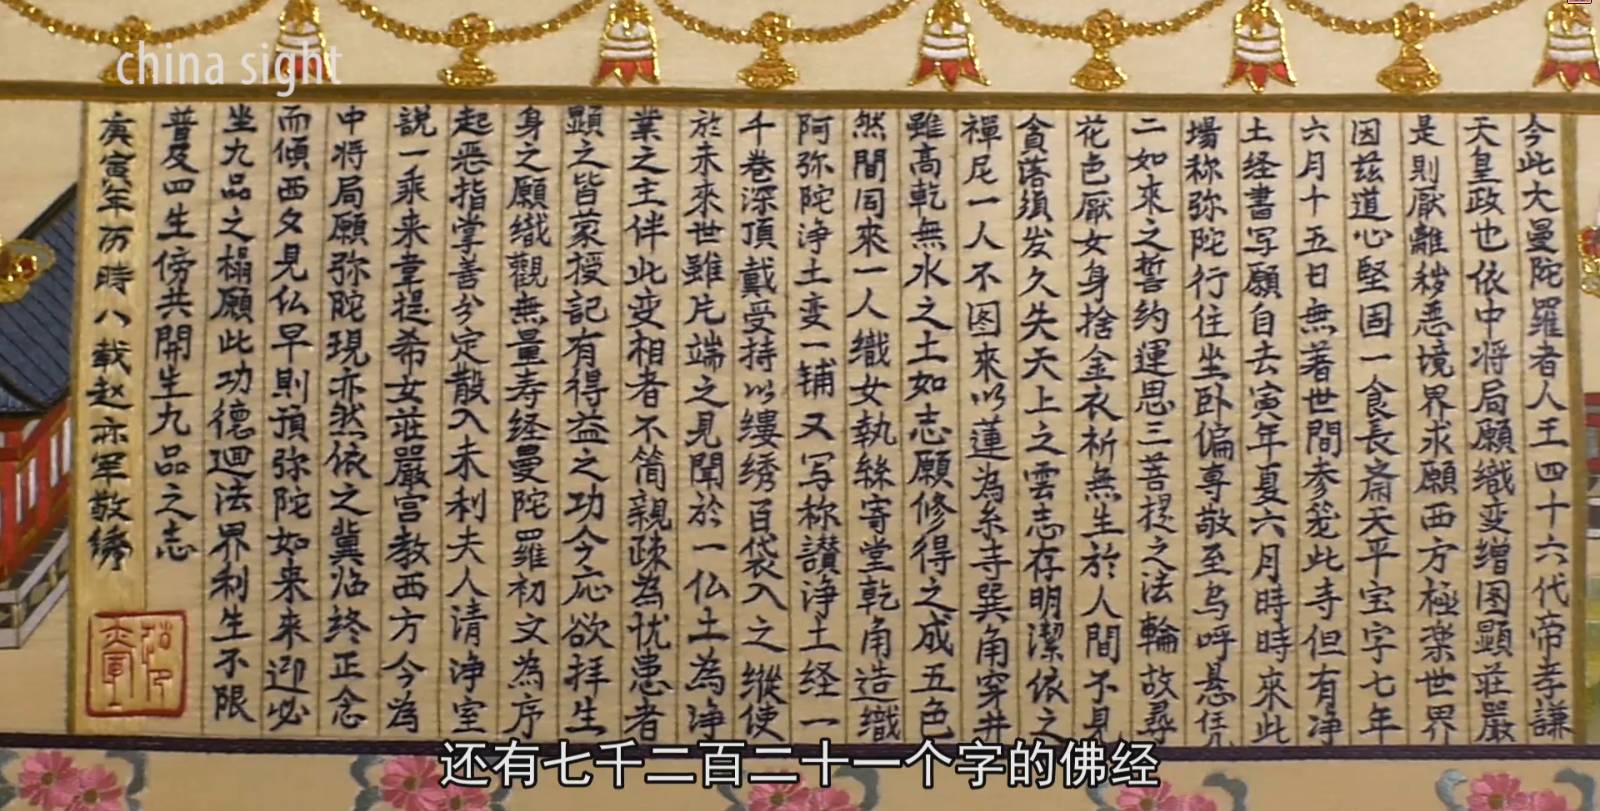 china sight
今此大曼陀羅者人王四十六代帝孝謙
天皇政也依中将局願織变繒图顯莊嚴
是則厭離穢悪境界求願西方極楽世界
因茲道心堅固一食長斎天平宝字七年
六月十五日無著世間参篭此寺但有净
土经書写願自去寅年夏六月時時來此
場称弥陀行住坐卧偏専敬至烏呼悬凭
二如來之誓约運思三菩提之法輪故尋
花色厭女身捨金衣祈無生於人間不身
貪落須发久失天上之雲志存明潔依之
禪尼一人不图來以蓮為糸寺巽角穿井
雖高乾無水之土如志願修得之成五色
然間同來一人織女執絲寄堂乾角造織
阿弥陀净土变一铺又写称讃净土经一
千巻深頂戴受持以縷绣百袋入之縱使
於未來世雖片端之見聞於一仏土為净
業之主伴此变相者不简親疎為忧患者
顕之皆蒙授記有得益之功今応欲拝生
身之願織觀無量寿経曼陀羅初文為序
起恶指掌善分定散入末利夫人清净室
説一乘来韋提希女莊嚴宫教西方今為
中将局願弥陀現亦然依之冀临终正念
而傾西夕見仏早則預弥陀如来来迎必
坐九品之榻願此功德廻法界利生不限
普及四生傍共開生九品之志
庚寅年历時八載赵亦军敬绣
还有七千二百二十一个字的佛经